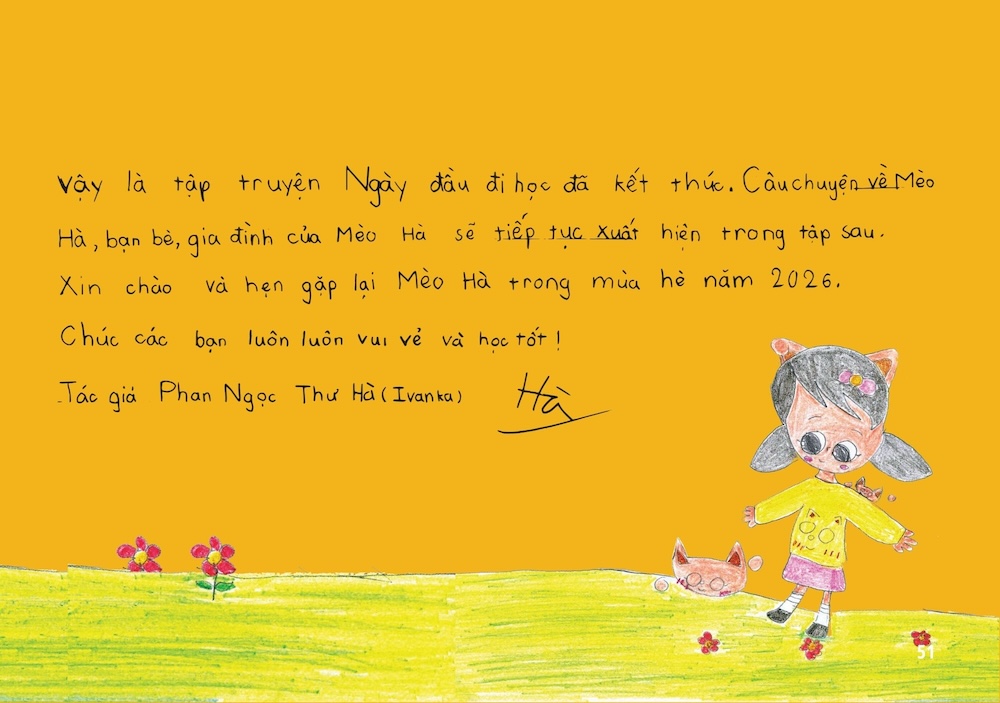 Vậy là tập truyện Ngày đầu đi học đã kết thúc. Câu chuyện về Mèo
Hà, bạn bè, gia đình của Mèo Hà sẽ tiếp tục xuất hiện trong tập sau.
Xin chào và hẹn gặp lại Mèo Hà trong mùa hè năm 2026.
Chúc các bạn luôn luôn vui vẻ và học tốt!
Tác giả Phan Ngọc Thư Hà (Ivanka) Hà
51